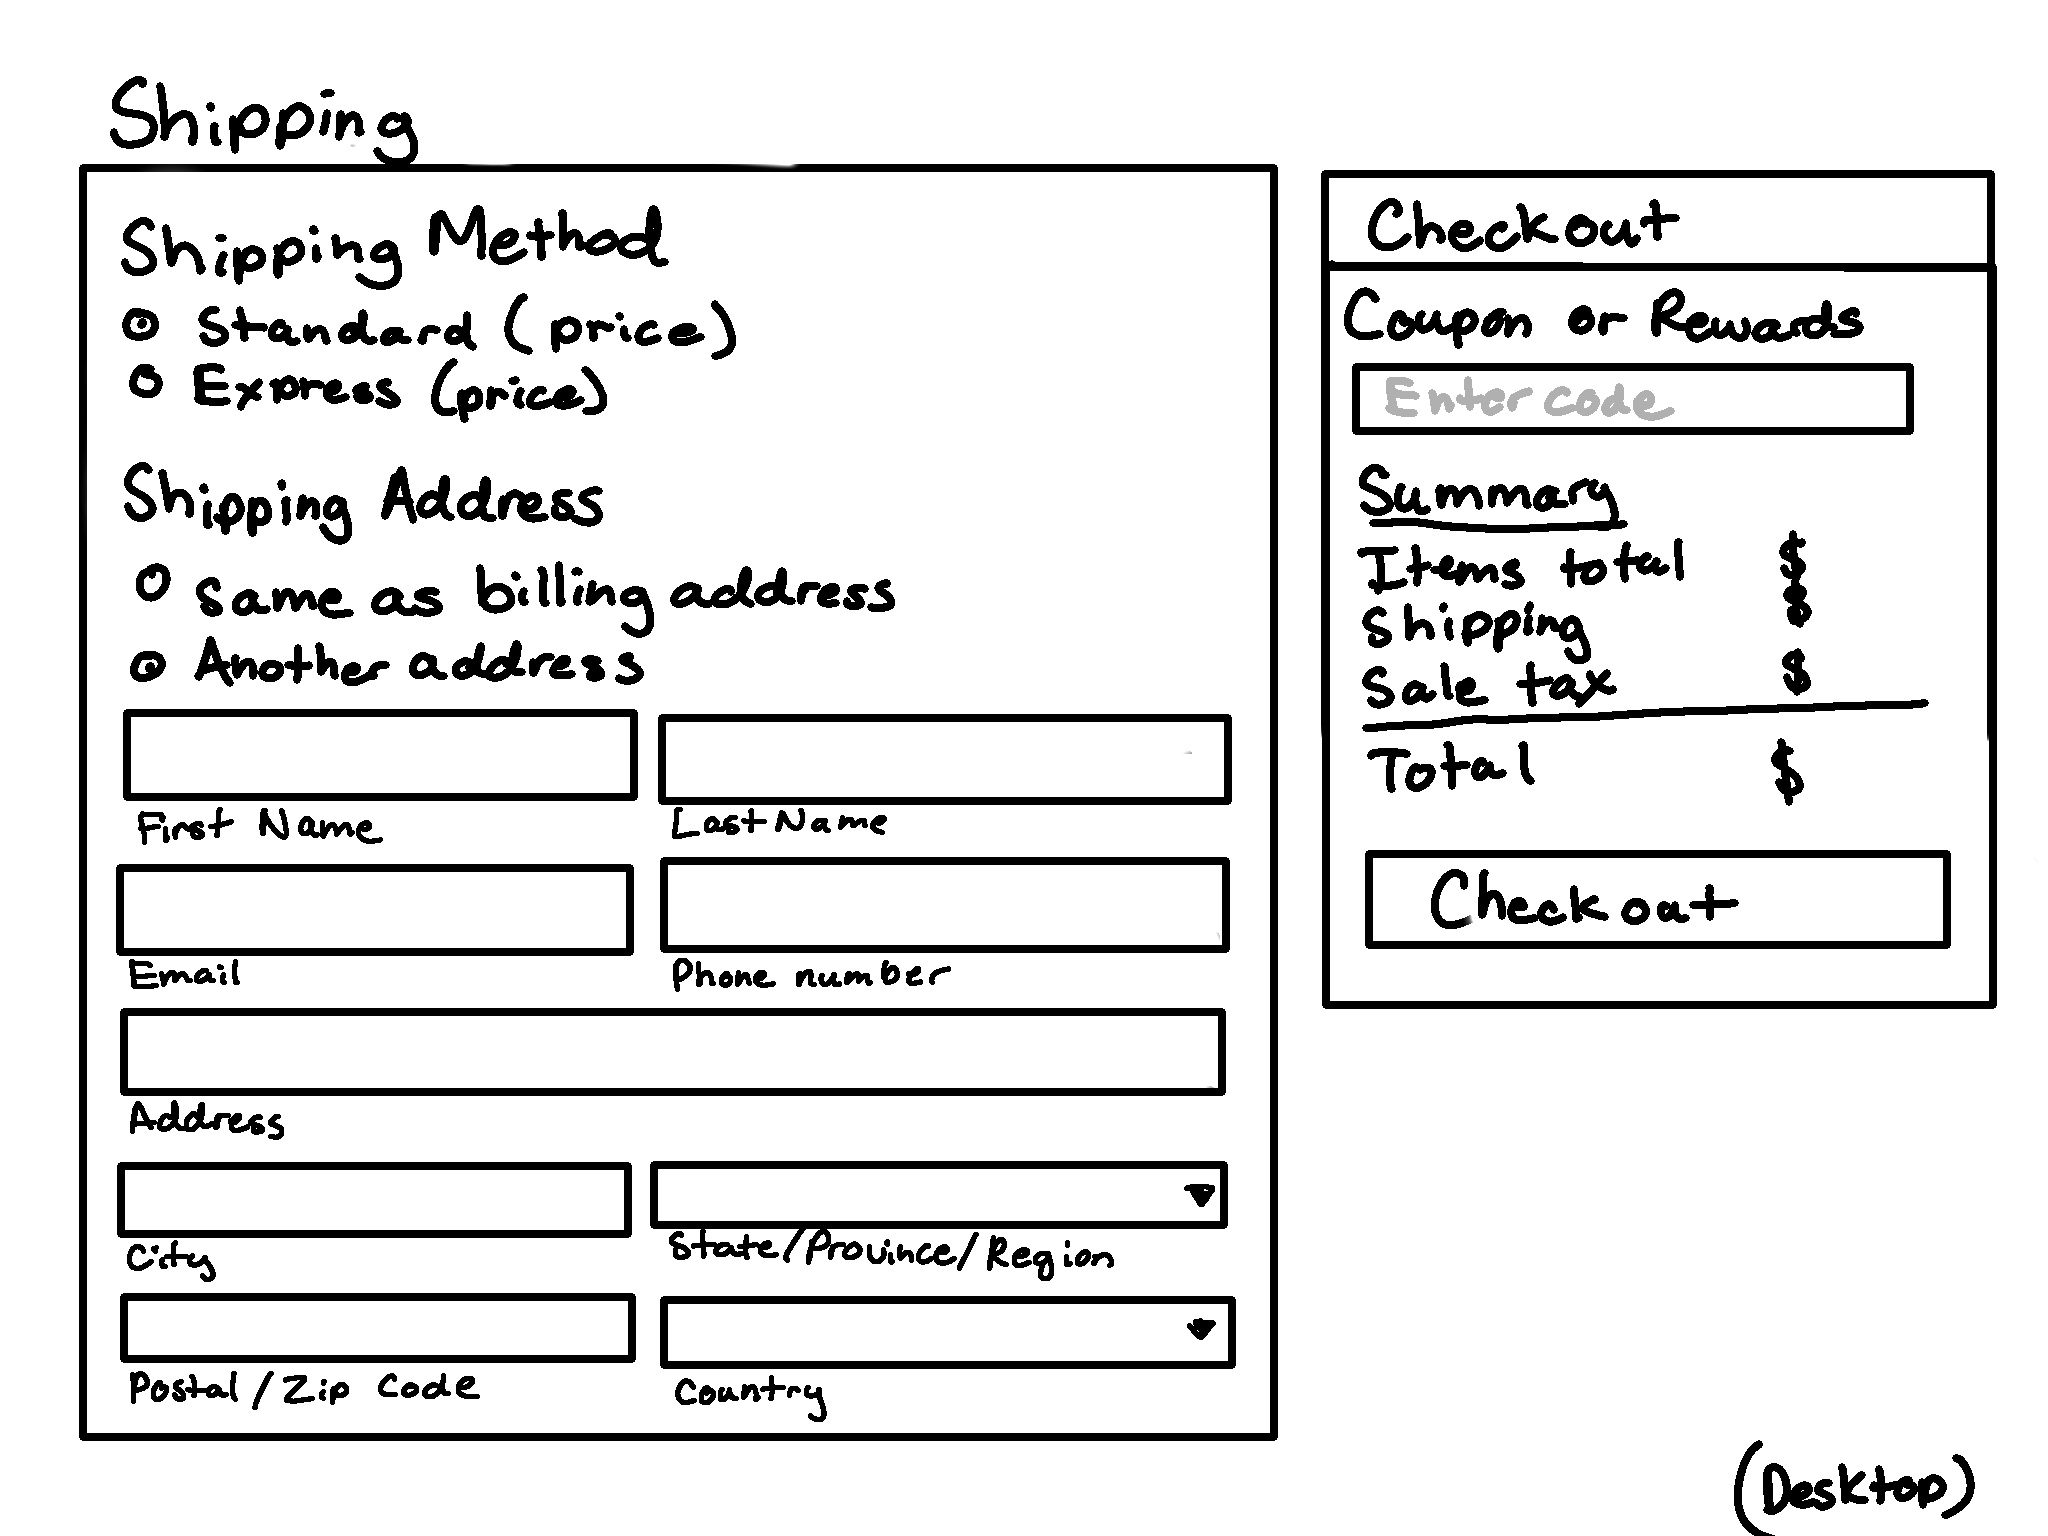 Shipping
Shipping Method
Standard (price)
Express (price)
Shipping Address
Same as billing address
Another address
First Name
Last Name
Email
Phone number
Address
City
State/Province/Region
Postal/Zip Code
Country
Checkout
Coupon or Rewards
Enter code
Summary
Items total $
Shipping $
Sale tax $
Total $
Checkout
(Desktop)